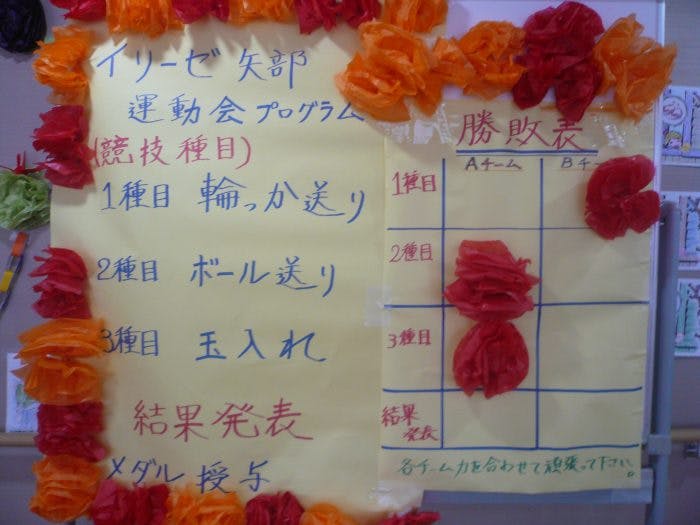 イリーゼ 矢部
運動会プログラム
(競技種目)
1種目 輪っか送り
2種目 ボール送り
3種目 玉入れ
結果発表
メダル授与
勝敗表
Aチーム Bチー
1種目
2種目
3種目
結果
発表
各チーム力を合わせて頑張って下さい。